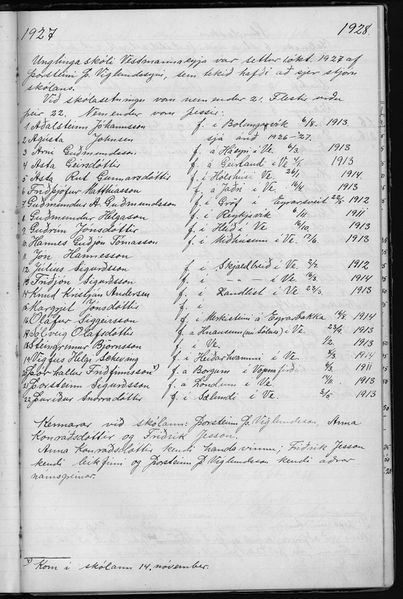 1927 1928
Unglinga skóli Vestmannaeyja var settur 1. okt. 1927 af
Þorsteini Þ. Víglundssyni, sem tekið hafði að sjer stjórn
skólans.
Við skólasetningu voru nemendur 21. Flestir urðu
þeir 22. Nemendur voru þessir:
1 Aðalsteinn Jóhannsson f. í Bolungarvík 6/8 1913
2 Ágústa Johnsen sjá árið 1926-27.
3 Árni Guðmundsson f. á Háeyri í Ve. 1913
4 Ásta Eiríksdóttir f. á í Ve. 1913
5 Ásta Rut Gunnarsdóttir f. í Hólshúsi í Ve. 1914
6 Friðþjófur Matthíasson f. á í Ve. 1913
7 Guðmundur A. Guðmundsson f. í Gröf í 1912
8 Guðmundur Helgason f. í Reykjavík 1911
9 Guðrún Jónsdóttir f. í Hlíð í Ve. 1913
10 Hannes Guðjón Tómasson f. í Miðhúsum í Ve. 1913
11 Jón Hannesson
12 Júlíus Sigurðsson f. í Skjaldbreið í Ve. 1912
13 Friðjón Sigurðsson f. í — í Ve. 1914
14 Knud Kristján Andersen f. í Landlist í Ve. 1913
15 Margrjet Jónsdóttir
16 Ólafur Sigurðsson f. í Merkisteini á Eyrarbakka 1914
17 Sólveig Ólafsdóttir f. á í Ve. 1913
18 Steingrímur Björnsson f. í Ve. 1913
19 Vigfús Helgi f. í Heiðarhvammi í Ve. 1914
20 Þórhallur Friðfinnsson x) f. á Borgum í Vopnafirði 1911
21 Þorsteinn Sigurðsson f. á Rondum í Ve. 1913
22 Þuríður Sindradóttir f. í í Ve. 1913
Kennarar við skólann: Þorsteinn Þ. Víglundsson, Anna
Konráðsdóttir og Friðrik Jesson.
Anna Konráðsdóttir kendi handavinnu, Friðrik Jesson
kendi leikfimi og Þorsteinn Þ. Víglundsson kendi aðrar
námsgreinar.
x) Kom í skólann 14. nóvember.